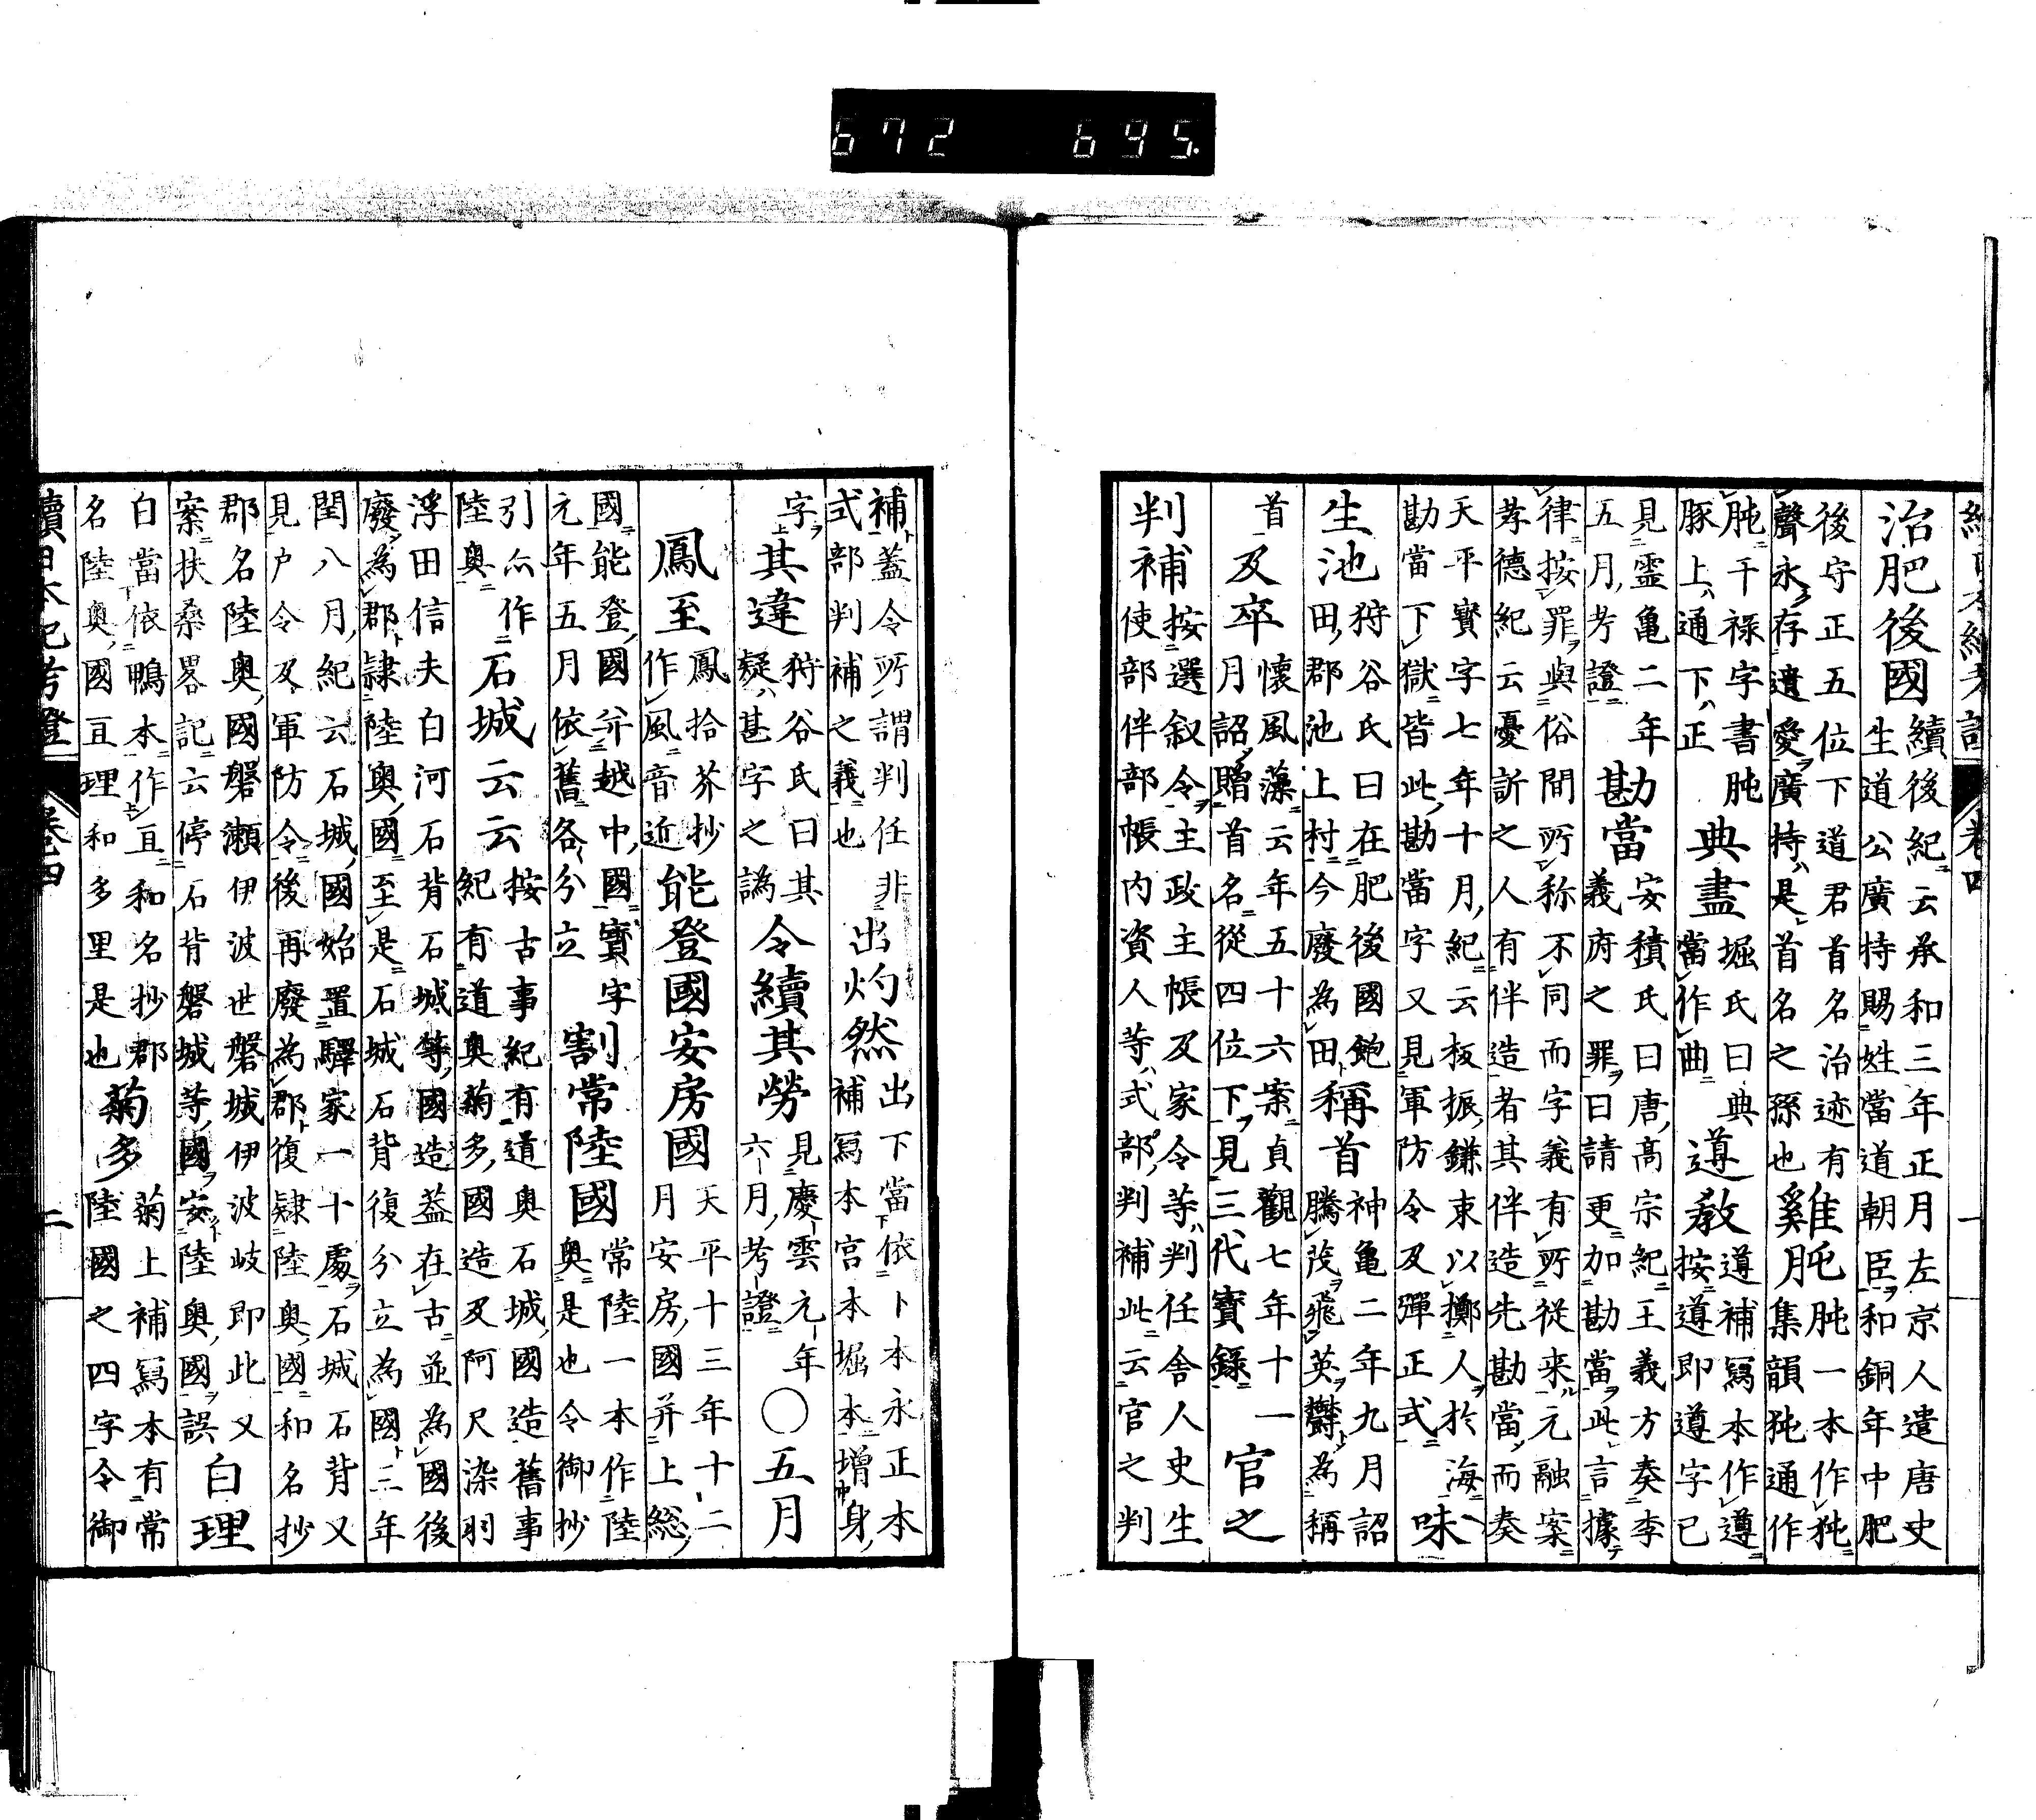 672 645.
續日本紀考證 卷四 一
治肥後國 續後紀云承和三年正月左京人遣唐史
生道公廣持賜姓當道朝臣和銅年中肥
後守正五位下道君首名治迹有
聲永存遺愛廣持是首名之孫也 雞肫 肫一本作㹠
集韻㹠通作
肫干祿字書肫
豚上通下正 典盡 堀氏曰典
當作曲 道教 道補寫本作遵
按道即遵字已
見靈亀二年
五月考證 勘當 安積氏曰唐高宗紀王義方奏李
義府之罪曰請更加勘當此言據
律按罪與俗間所称不同而字義有所從来元融案
孝德紀云憂訴之人有伴造者其伴造先勘當而奏
天平寶字七年十月紀云板振鎌束以擲人於海
勘當下獄皆此勘當字又見軍防令及彈正式 味
生池 狩谷氏曰在肥後國飽
田郡池上村今廢為田 稱首 神亀二年九月詔
騰茂飛英欝為稱
首 及卒 懷風藻云年五十六案貞觀七年十一
月詔贈首名從四位下見三代實錄 官之
判補 按選叙令主政主帳及家令等判任舍人史生
使部伴部帳内資人等式部判補此云官之判
補蓋令所謂判任非
式部判補之義也 出灼然 出下當依卜本永正本
補寫本宮本堀本增身
字 其違 狩谷氏曰其
疑甚字之譌 令續其勞 見慶雲元年
六月考證 〇五月
鳳至 鳳拾芥抄
作風音近 能登國安房國 天平十三年十二
月安房國并上総
國能登國并越中國寶字
元年五月依舊各分立 割常陸國 常陸一本作陸
奧是也令御抄
引亦作
陸奧 石城云云 按古事紀有道奧石城國造舊事
紀有道奧菊多國造及阿尺染羽
浮田信夫白河石背石城等國造蓋在古並為國後
廢為郡隷陸奧國至是石城石背復分立為國三年
閏八月紀云石城國始置驛家一十處石城石背又
見戶令及軍防令後再廢為郡復隷陸奧國和名抄
郡名陸奧國磐瀬伊波世磐城伊波岐即此又
案扶桑畧記云停石背磐城等國安陸奧國誤 白理
白當依鴨本作亘和名抄郡
名陸奧國亘理和多里是也 菊多 菊上補寫本有常
陸國之四字令御
續日本紀考證 卷四 二